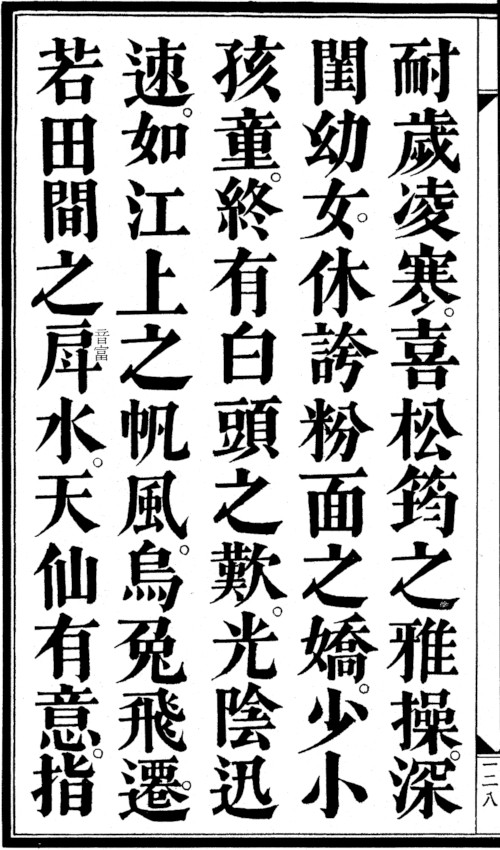 耐歲凌寒。喜松筠之雅操。深
閨幼女。休誇粉面之嬌。少小
孩童。終有白頭之歎。光陰迅
速。如江上之帆風。烏兔飛遷。
若田間之戽音富水。天仙有意。指
一二八